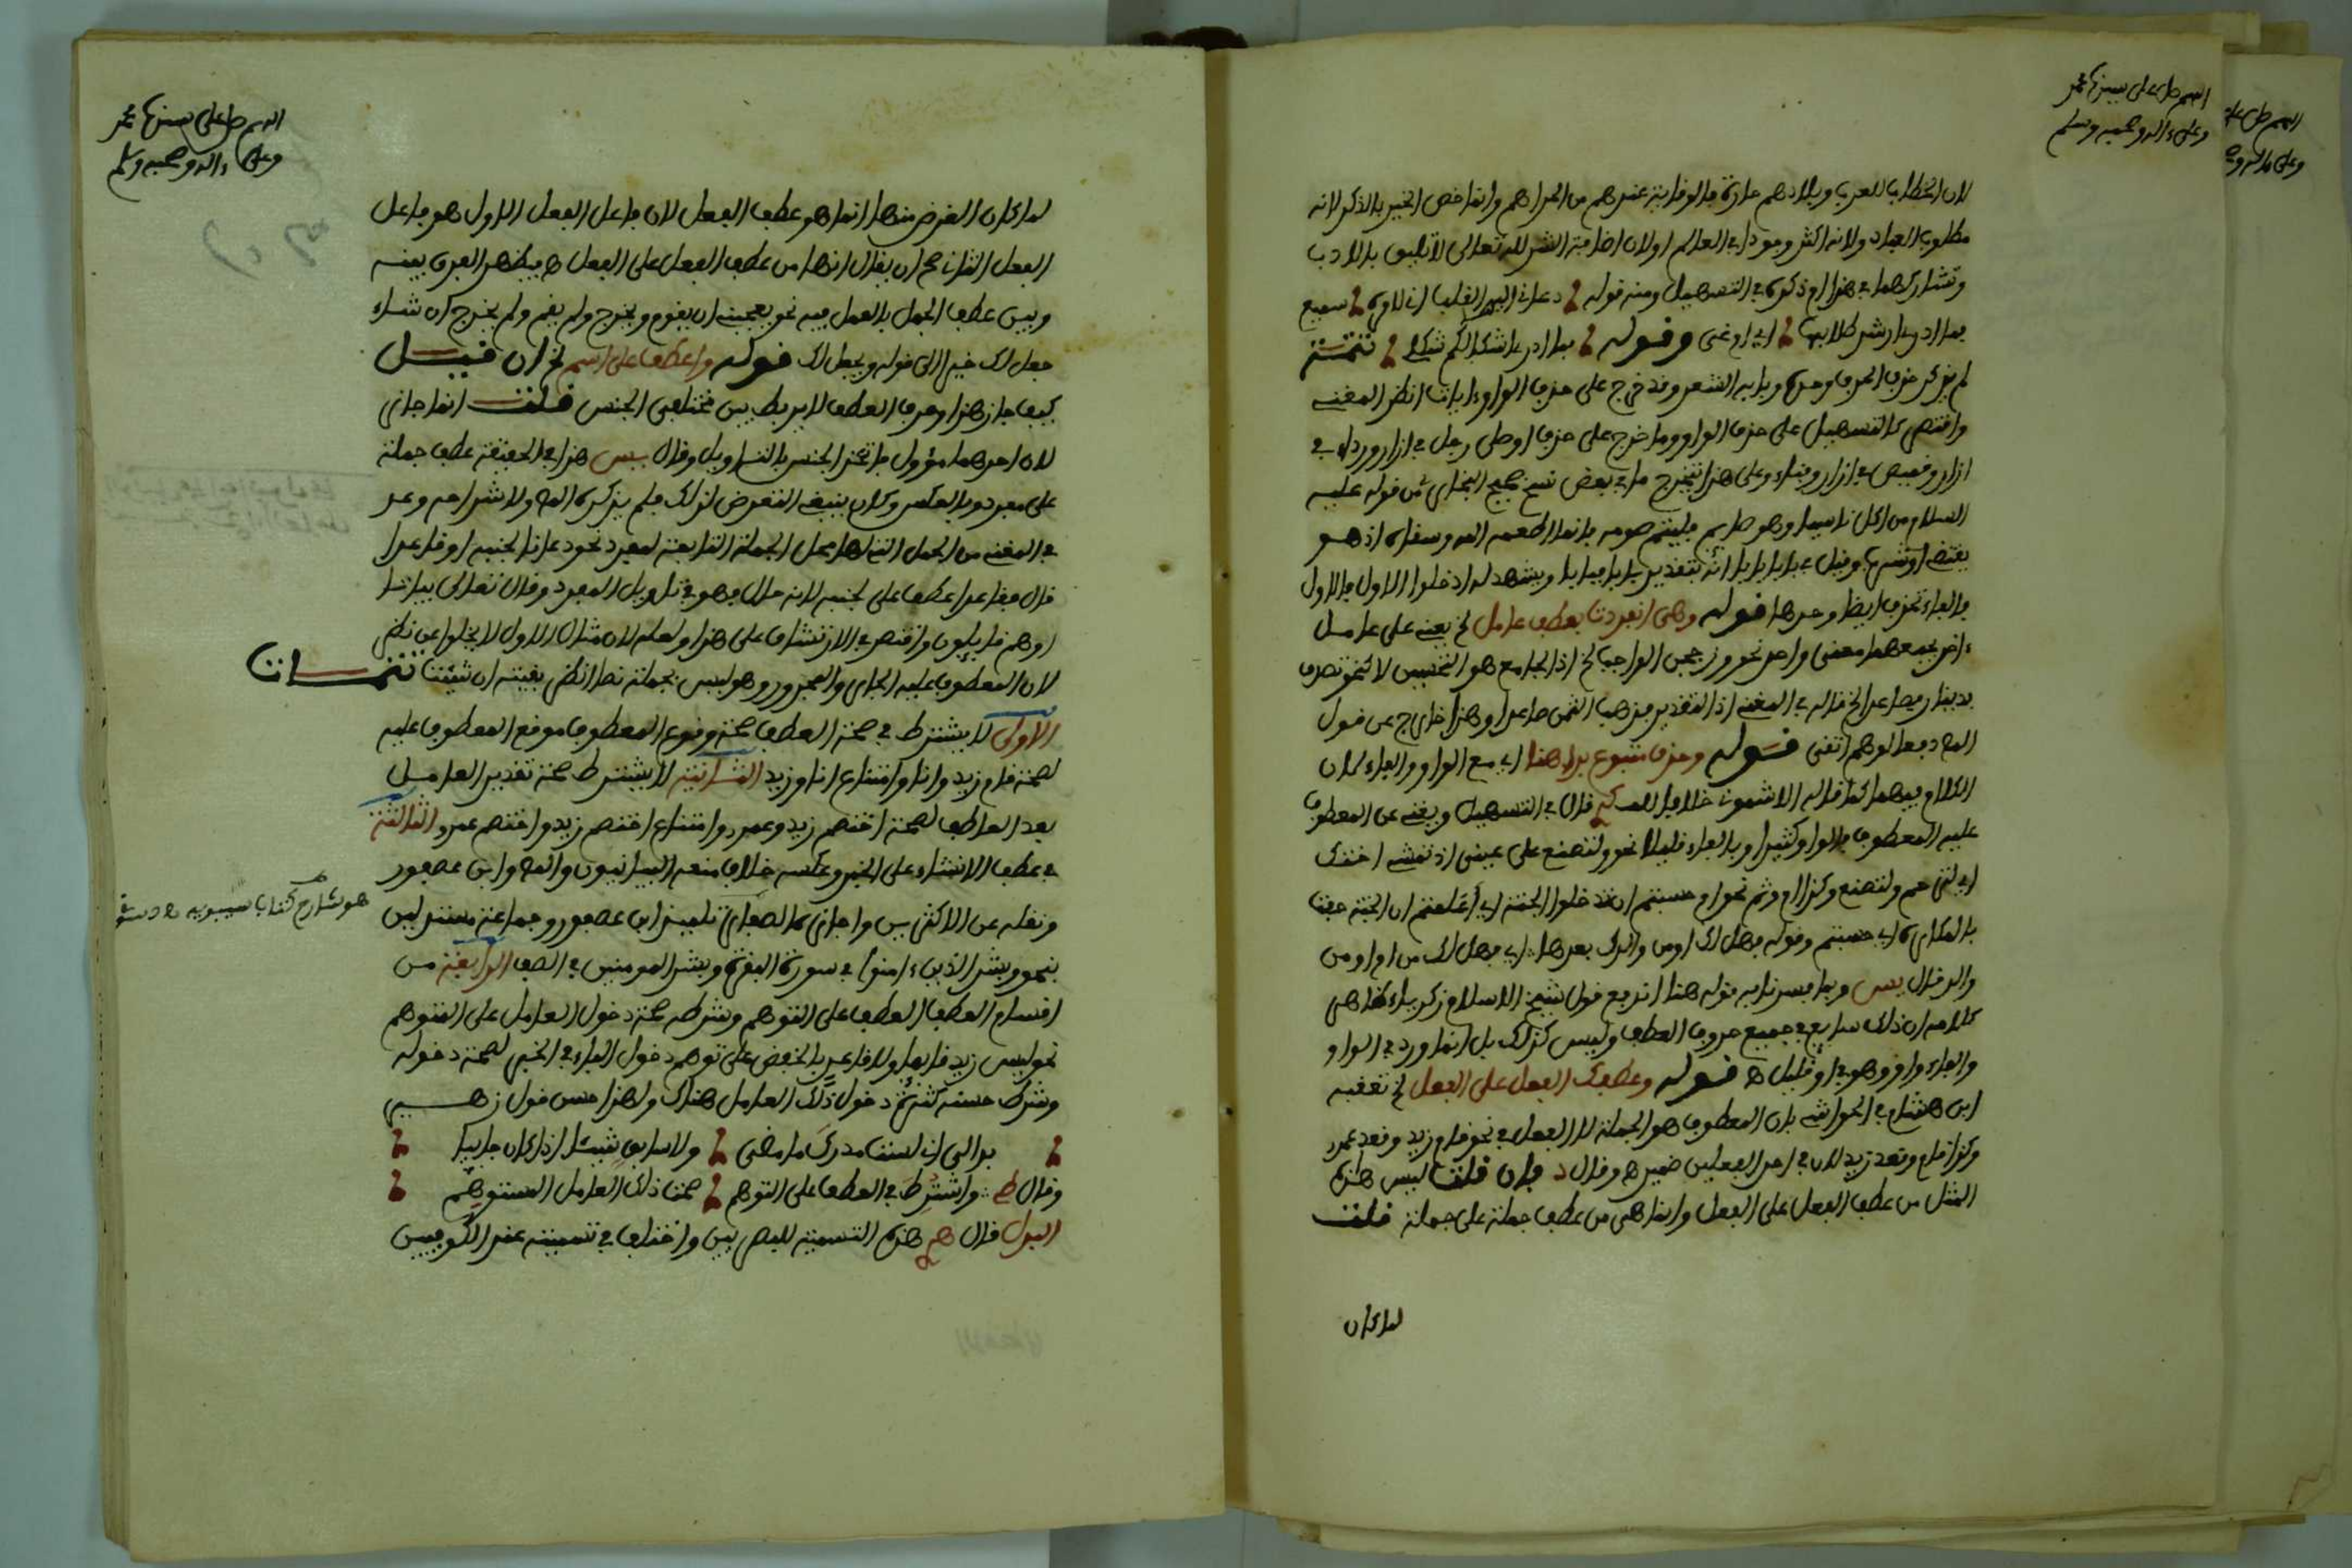 اللهم صل على سيدنا محمد
وعلى ءاله وصحبه وسلم
لان الخطاب للعرب وبلادهم حارة فالوقاية عندهم من الحر اهم وانما خص الخير بالذكر لانه
مطلوب العباد ولانه اكثر وجودا في العالم او لان اضافة الشر لله تعالى لا تليق بالادب
وتشاركهما في هذا ام ذكره في التسهيل ومنه قوله دعاني اليها القلب اني لامره سميع
فما ادري ارشد طلابها اي ام غي وقوله فما ادري اشكلكم شكلي تتمة
لم يذكر حذف الحرف وحده وبابه الشعر وقد خرج على حذف الواو ءايات انظر المغني
واقتصر كالتسهيل على حذف الواو ومما خرج على حذف او صلى رجل في ازار ورداء في
ازار وقميص في ازار وقباء وعلى هذا يتخرج ما في بعض نسخ صحيح البخاري من قوله عليه
السلام من اكل ناسيا وهو صايم فليتم صومه فانما اطعمه الله وسقاه اذ هو
بمعنى او شرب وقيل في بابا بابا انه بتقدير بابا فبابا ويشهد له ادخلوا الاول فالاول
فالفاء تحذف ايضا وحدها قوله وهي انفردت بعطف عامل لخ يعني على عامل
ءاخر يجمعهما معنى واحد نحو وزججن الحواجب لخ اذ الجامع هو التحسين لا نحو تصدق
بدينار فصاعدا لخ قاله في المغني اذ التقدير فذهب الثمن صاعدا وهذا خارج عن قول
المص دفعا لوهم اتقي قوله وحذف متبوع بدا هنا اي مع الواو والفاء لان
الكلام فيهما كما قاله الاشموني خلافا قال في التسهيل ويغني عن المعطوف
عليه المعطوف بالواو كثيرا وبالفاء قليلا نحو ولتصنع على عيني اذ تمشي اختك
اي لترحم ولتصنع وكذا ام وثم نحو ام حسبتم ان تدخلوا الجنة اي اعلمتم ان الجنة حفت
بالمكاره ام حسبتم وقوله فهل لك او من والد لك بعدها اي فهل لك من ام او من
والد قال يس وبما فسرنا به قوله هنا اندفع قول شيخ الاسلام زكرياء ظاهر
كلامه ان ذلك سايغ في جميع حروف العطف وليس كذلك بل انما ورد في الواو
والفاء واو وهو في او قليل ه قوله وعطفك الفعل على الفعل لخ تعقبه
ابن هشام في الحواشي بان المعطوف هو الجملة لا الفعل في نحو قام زيد وقعد عمرو
وكذا قام وقعد زيد لان في احد الفعلين ضمير ه وقال د فان قلت ليس هذه
المثل من عطف الفعل على الفعل وانما هي من عطف جملة على جملة قلت
لما كان
اللهم صل على سيدنا محمد
وعلى ءاله وصحبه وسلم
لما كان الغرض منها انما هو عطف الفعل لان فاعل الفعل الاول هو فاعل
الفعل الثاني صح ان يقال انها من عطف الفعل على الفعل ه فيظهر الفرق بينه
وبين عطف الجمل بالعمل فيه نحو يعجبني ان يقوم ويخرج ولم يقم ولم يخرج ان شاء
جعل لك خيرا الى قوله ويجعل لك قوله واعطف على اسم لخ ان قيل
كيف جاز هذا وحرف العطف لا يربط بين مختلفي الجنس قلت انما جاز
لان احدهما مؤول فاتحد الجنس بالتاويل وقال يس هذا في الحقيقة عطف جملة
على مفرد وبالعكس وكان ينبغي التعرض لذلك فلم يذكره المص ولا شراحه وعد
في المغني من الجمل التي لها محل الجملة التابعة لمفرد نحو دعانا لجنبه او قاعدا
قال فقاعدا عطف على لجنبه لانه حال فهو في تاويل المفرد وقال تعالى بياتا
او هم قايلون واقتصر في الارتشاف على هذا ولعله لان مثال الاول لا يخلو عن نظر
لان المعطوف عليه الجار والمجرور وهو ليس بجملة نصا انظر بقيته ان شئت تتمات
الاولى لا يشترط في صحة العطف صحة وقوع المعطوف موقع المعطوف عليه
لصحة قام زيد وانا وامتناع انا وزيد الثانية لا يشترط صحة تقدير العامل
بعد العاطف لصحة اختصم زيد وعمرو وامتناع اختصم زيد واختصم عمرو الثالثة
في عطف الانشاء على الخبر وعكسه خلاف منعه البيانيون والمص وابن عصفور
ونقله عن الاكثرين واجازه الصفار تلميذ ابن عصفور وجماعة مستدلين
بنحو وبشر الذين ءامنوا في سورة البقرة وبشر المومنين في الصف الرابعة من
اقسام العطف العطف على التوهم وشرطه صحة دخول العامل على المتوهم
نحو ليس زيد قايما ولا قاعد بالخفض على توهم دخول الباء في الخبر لصحة دخوله
وشرط حسنه كثرة دخول ذلك العامل هناك ولهذا حسن قول زهير
بدا لي اني لست مدرك ما مضى ولا سابق شيئا اذا كان جاييا
وقال واشترط في العطف على التوهم صحة ذلك العامل المستوهم
البدل قال هذه التسمية للبصريين واختلف في تسميته عند الكوفيين
هو شارح كتاب سيبويه